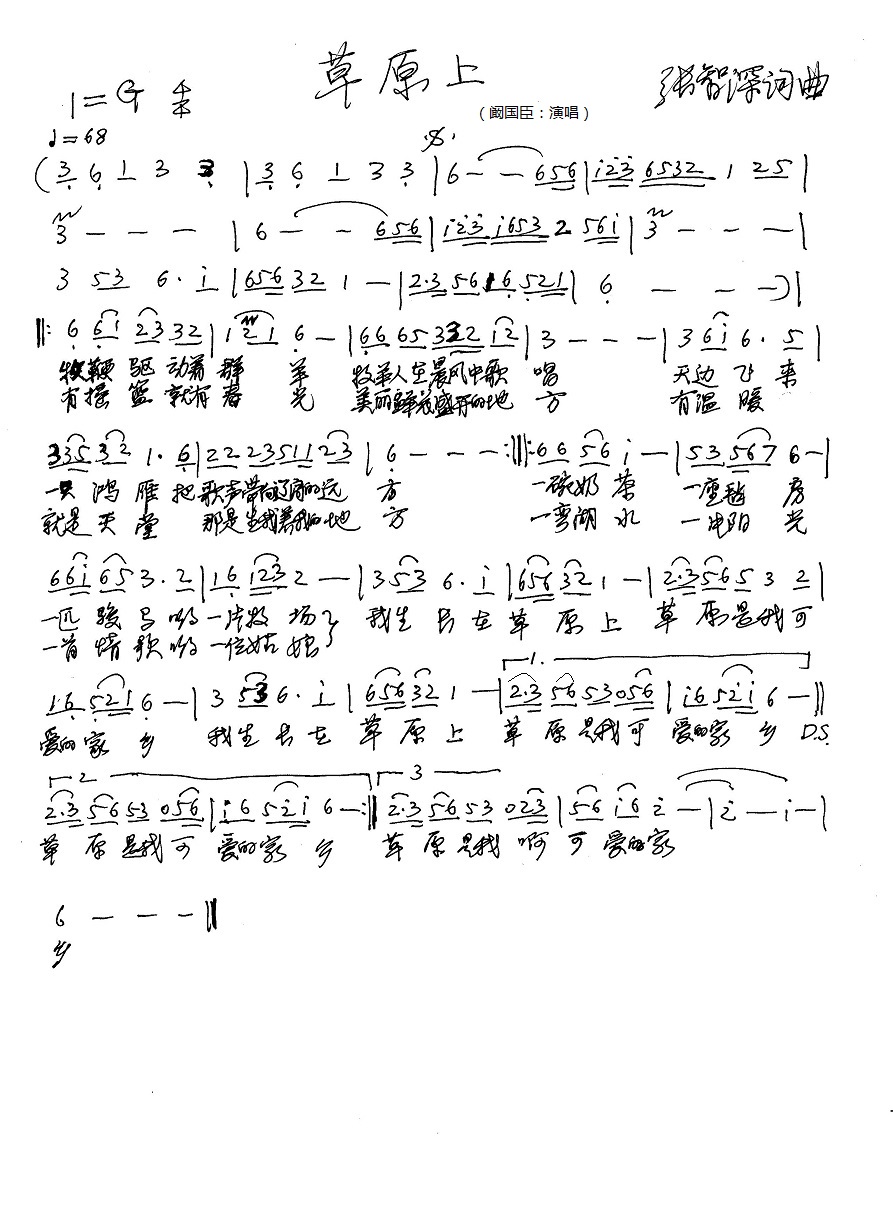 草原上
1=G 4/4
张智深词曲
（阚国臣：演唱）
♩=68
(3 6 1 3 3 | 3 6 1 3 3 | 6 - - 656 | i23 6532 1 25 |
3 - - - | 6 - - 656 | i23 i653 2 56i | 3 - - - |
3 53 6· i | 656 32 1 - | 2·3 56 16 521 | 6 - - -) |
‖: 6 6i 23 32 | 121 6 - | 66 65 332 12 | 3 - - - | 3 6i 6· 5 |
牧鞭驱动着群羊 牧羊人在晨风中歌唱 天边飞来
有摇篮就有春光 美丽鲜花盛开的地方 有温暖
335 32 1· 6 | 22 23511 23 | 6 - - - :‖: 66 56 i - | 53 567 6 - |
一只鸿雁把歌声带向辽阔的远方 一碗奶茶 一座毡房
就是天堂 那是生我养我的地方 一弯湖水 一片阳光
66i 65 3· 2 | 16 123 2 - | 3 53 6· i | 656 32 1 - | 2·3 56 5 3 2 |
一匹骏马哟一片牧场 我生长在草原上 草原是我可
一首情歌哟一位姑娘
16 521 6 - | 3 53 6· i | 656 32 1 - | 1. 2·3 56 53 056 | i6 52i 6 - ‖
爱的家乡 我生长在草原上 草原是我可爱的家乡 D.S.
2 2·3 56 53 056 | i6 52i 6 - :‖ 3 2·3 56 53 023 | 56 i6 2 - | 2 - i - |
草原是我可爱的家乡 草原是我啊可爱的家
6 - - - ‖
乡